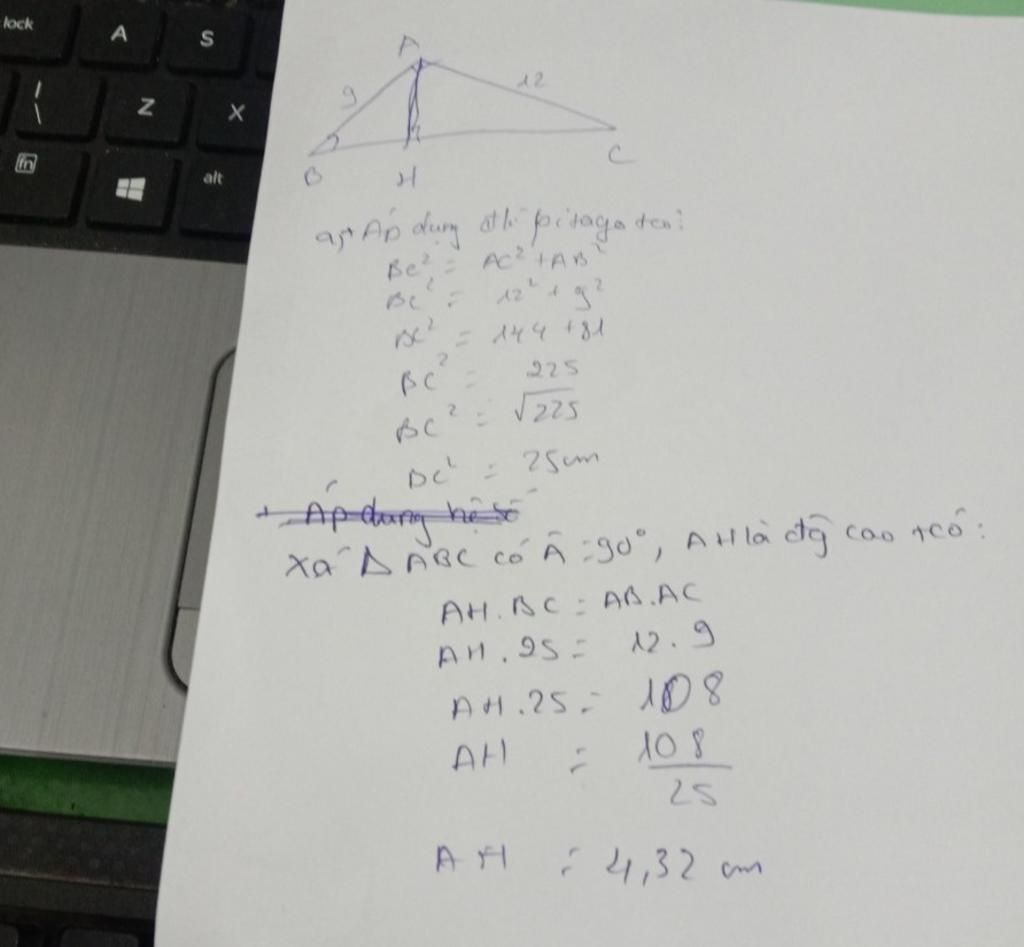 lock
A
S
Z
X
fn
alt
A
9
12
B
H
C
a,+ Áp dụng đlí pitago ta có:
BC² = AC² + AB²
BC² = 12² + 9²
BC² = 144 + 81
BC² = 225
BC² = √225
BC² = 25cm
+ Áp dụng hệ số
Xét Δ ABC có Â = 90°, AH là đg cao + có:
AH.BC = AB.AC
AH.25 = 12.9
AH.25 = 108
AH = 108/25
AH = 4,32 cm